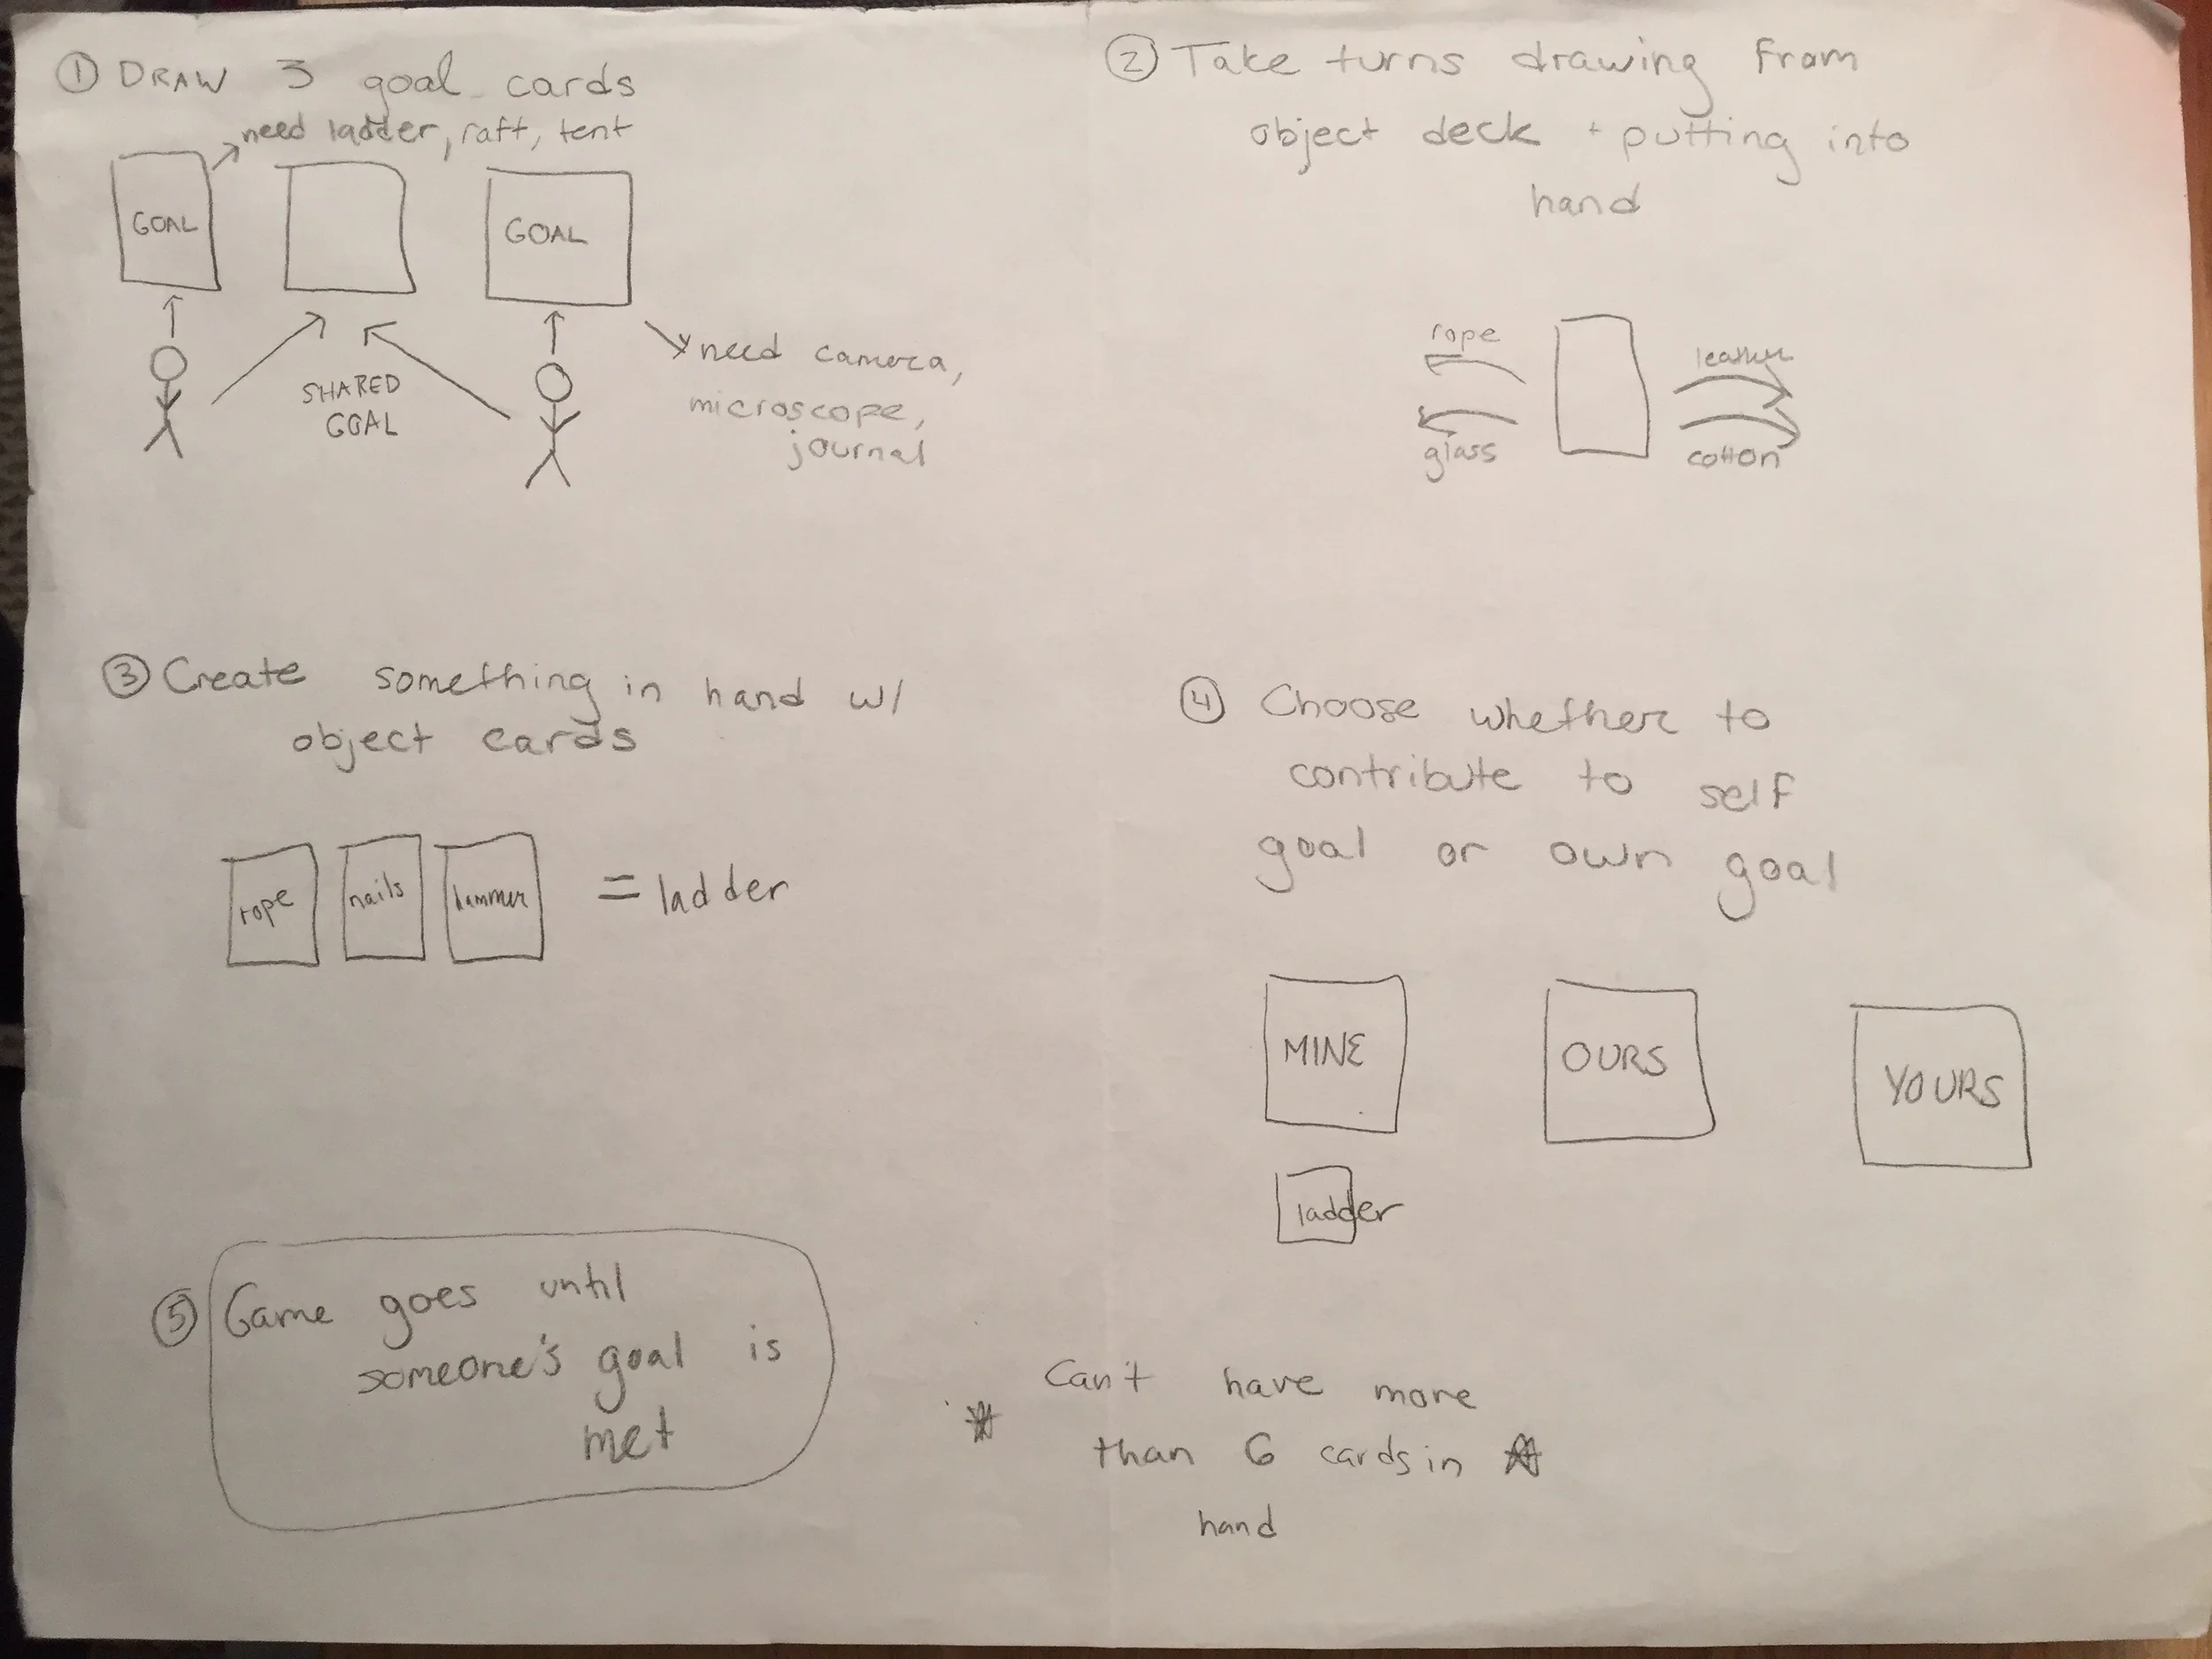 ① DRAW 3 goal cards
need ladder, raft, tent
GOAL
GOAL
SHARED
GOAL
need camera,
microscope,
journal
② Take turns drawing from
object deck + putting into
hand
rope
leather
glass
cotton
③ Create something in hand w/
object cards
rope nails hammer = ladder
④ Choose whether to
contribute to self
goal or own goal
MINE
OURS
YOURS
ladder
⑤ Game goes until
someone's goal is
met
Can't have more
than 6 cards in
hand